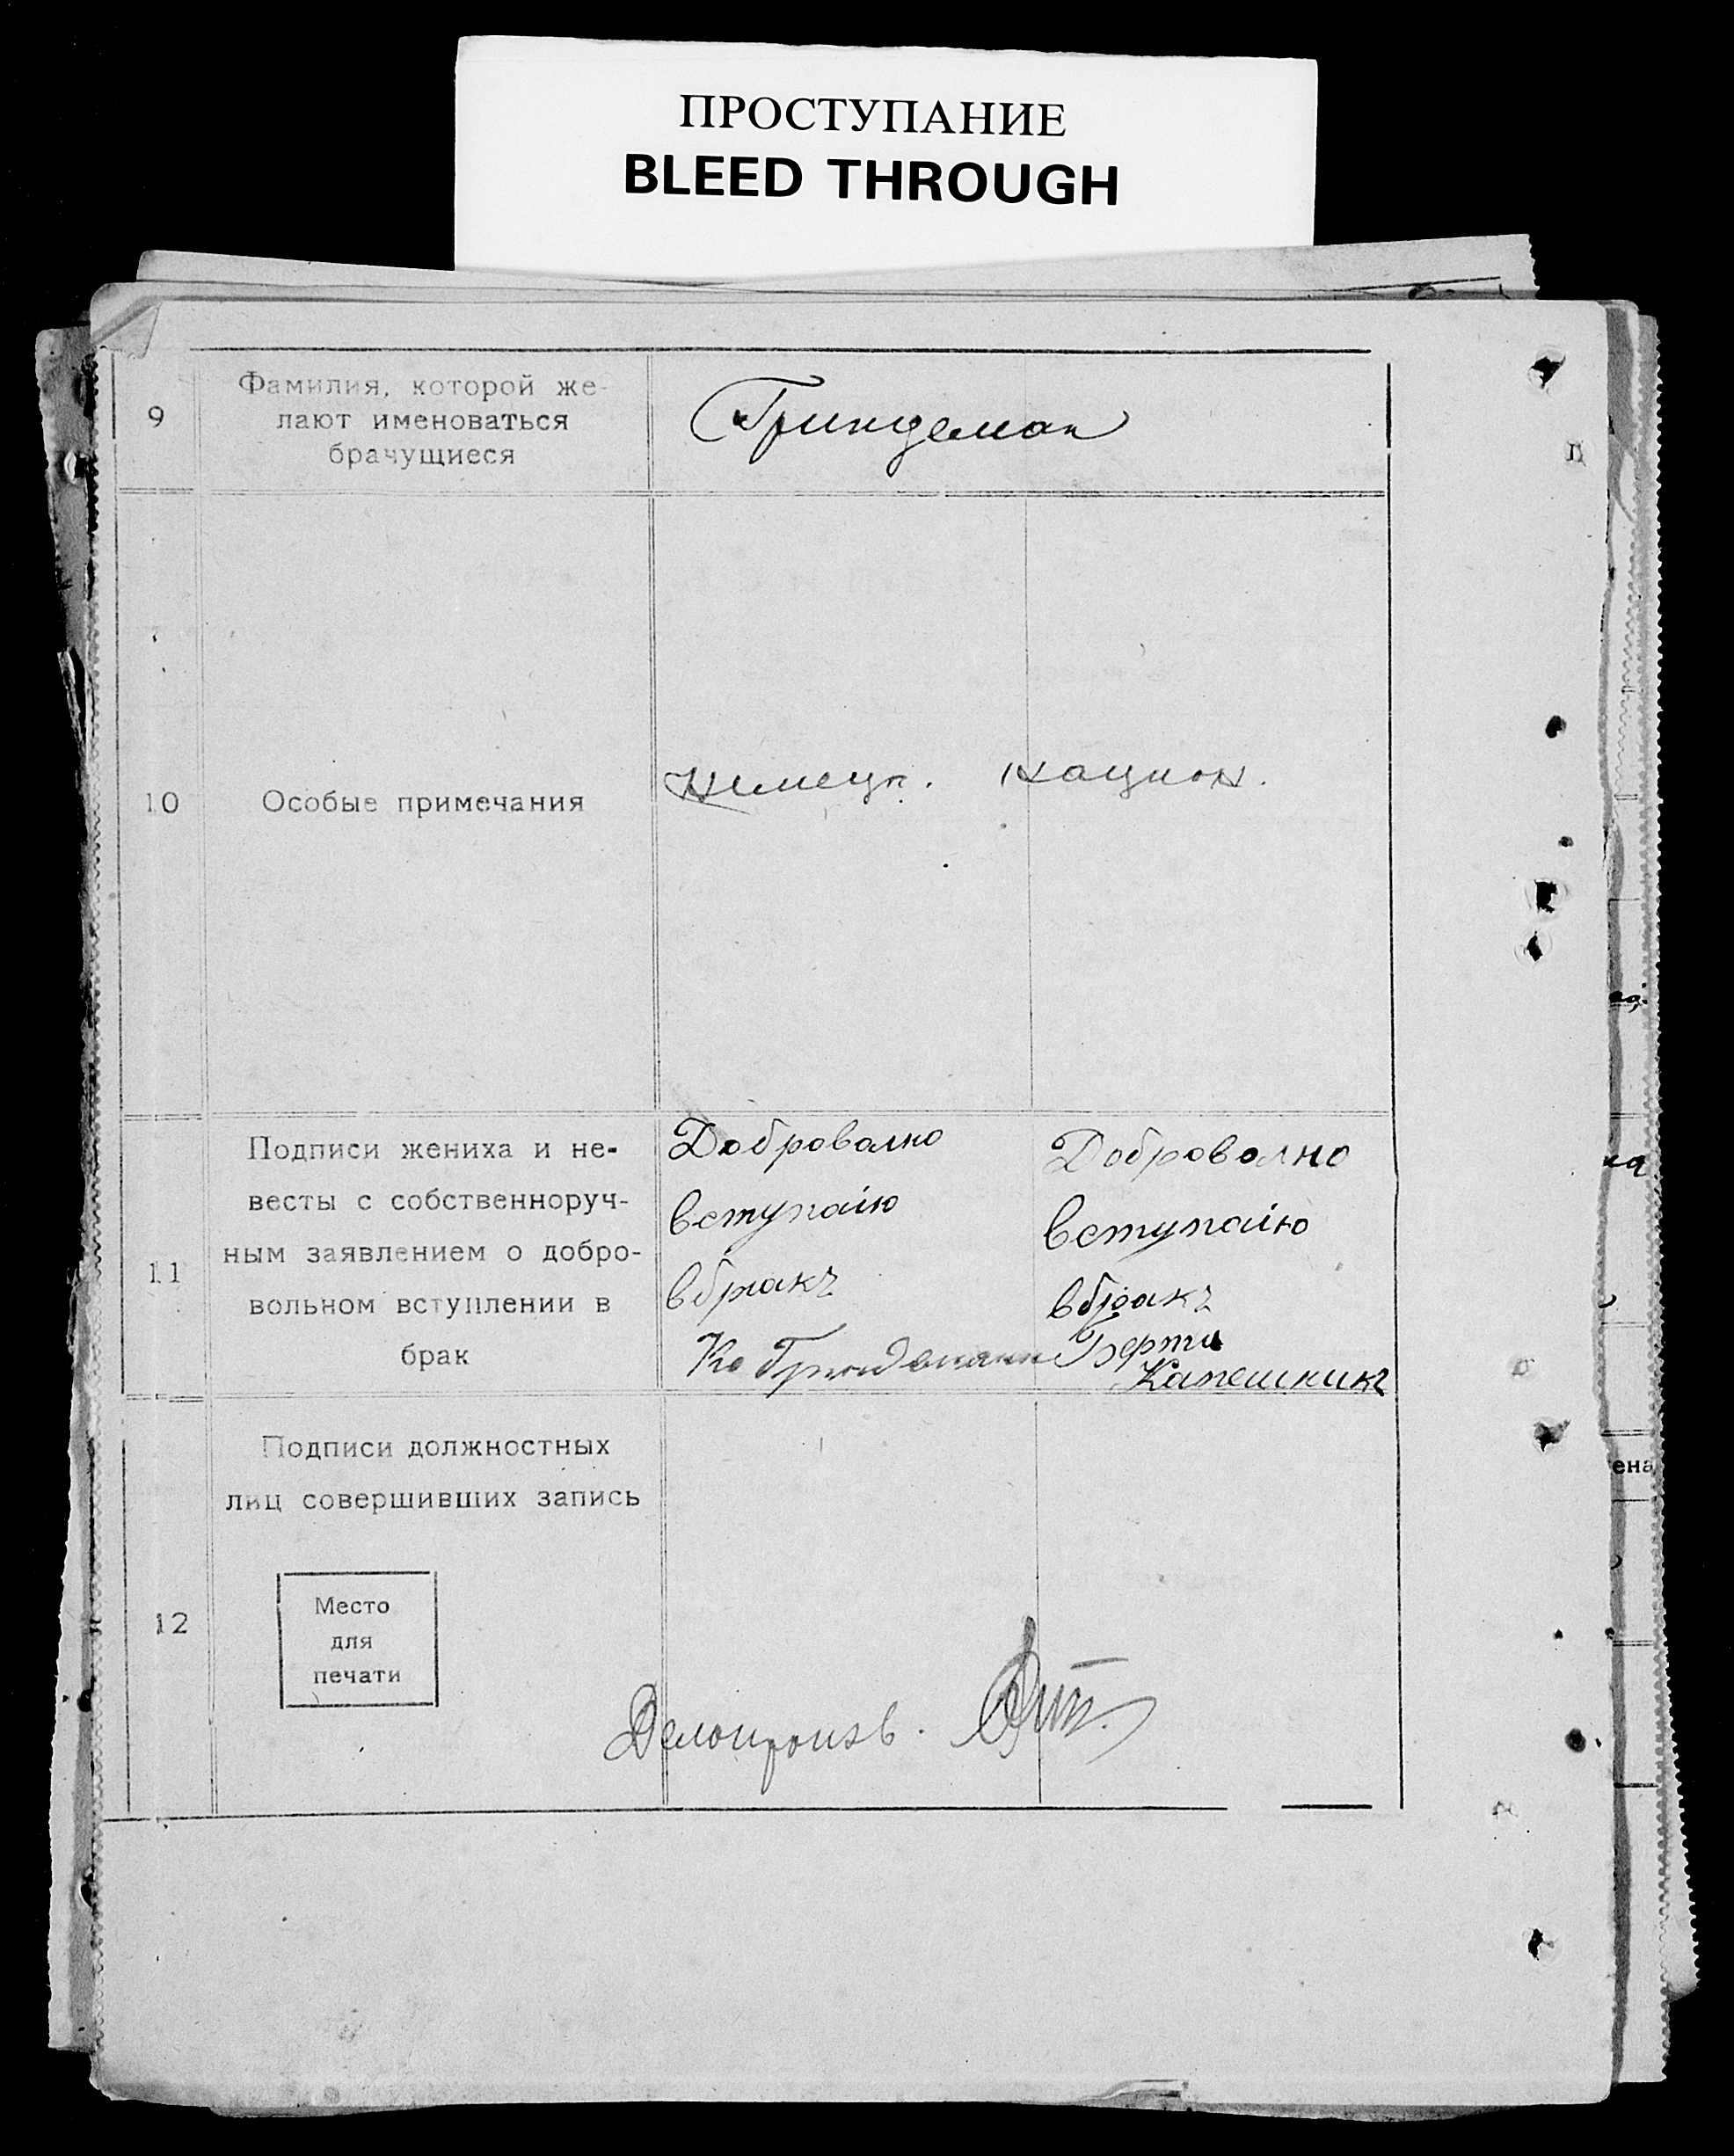 ПРОСТУПАНИЕ
BLEED THROUGH
9
Фамилия, которой же-
лают именоваться
брачущиеся
Гриндеман
10
Особые примечания
Немецк. национ.
11
Подписи жениха и не-
весты с собственноруч-
ным заявлением о добро-
вольном вступлении в
брак
Доброволно
вступаію
вбракъ
Доброволно
вступаію
вбракъ
Берта
12
Подписи должностных
лиц совершивших запись
Место
для
печати
Делопроизв.